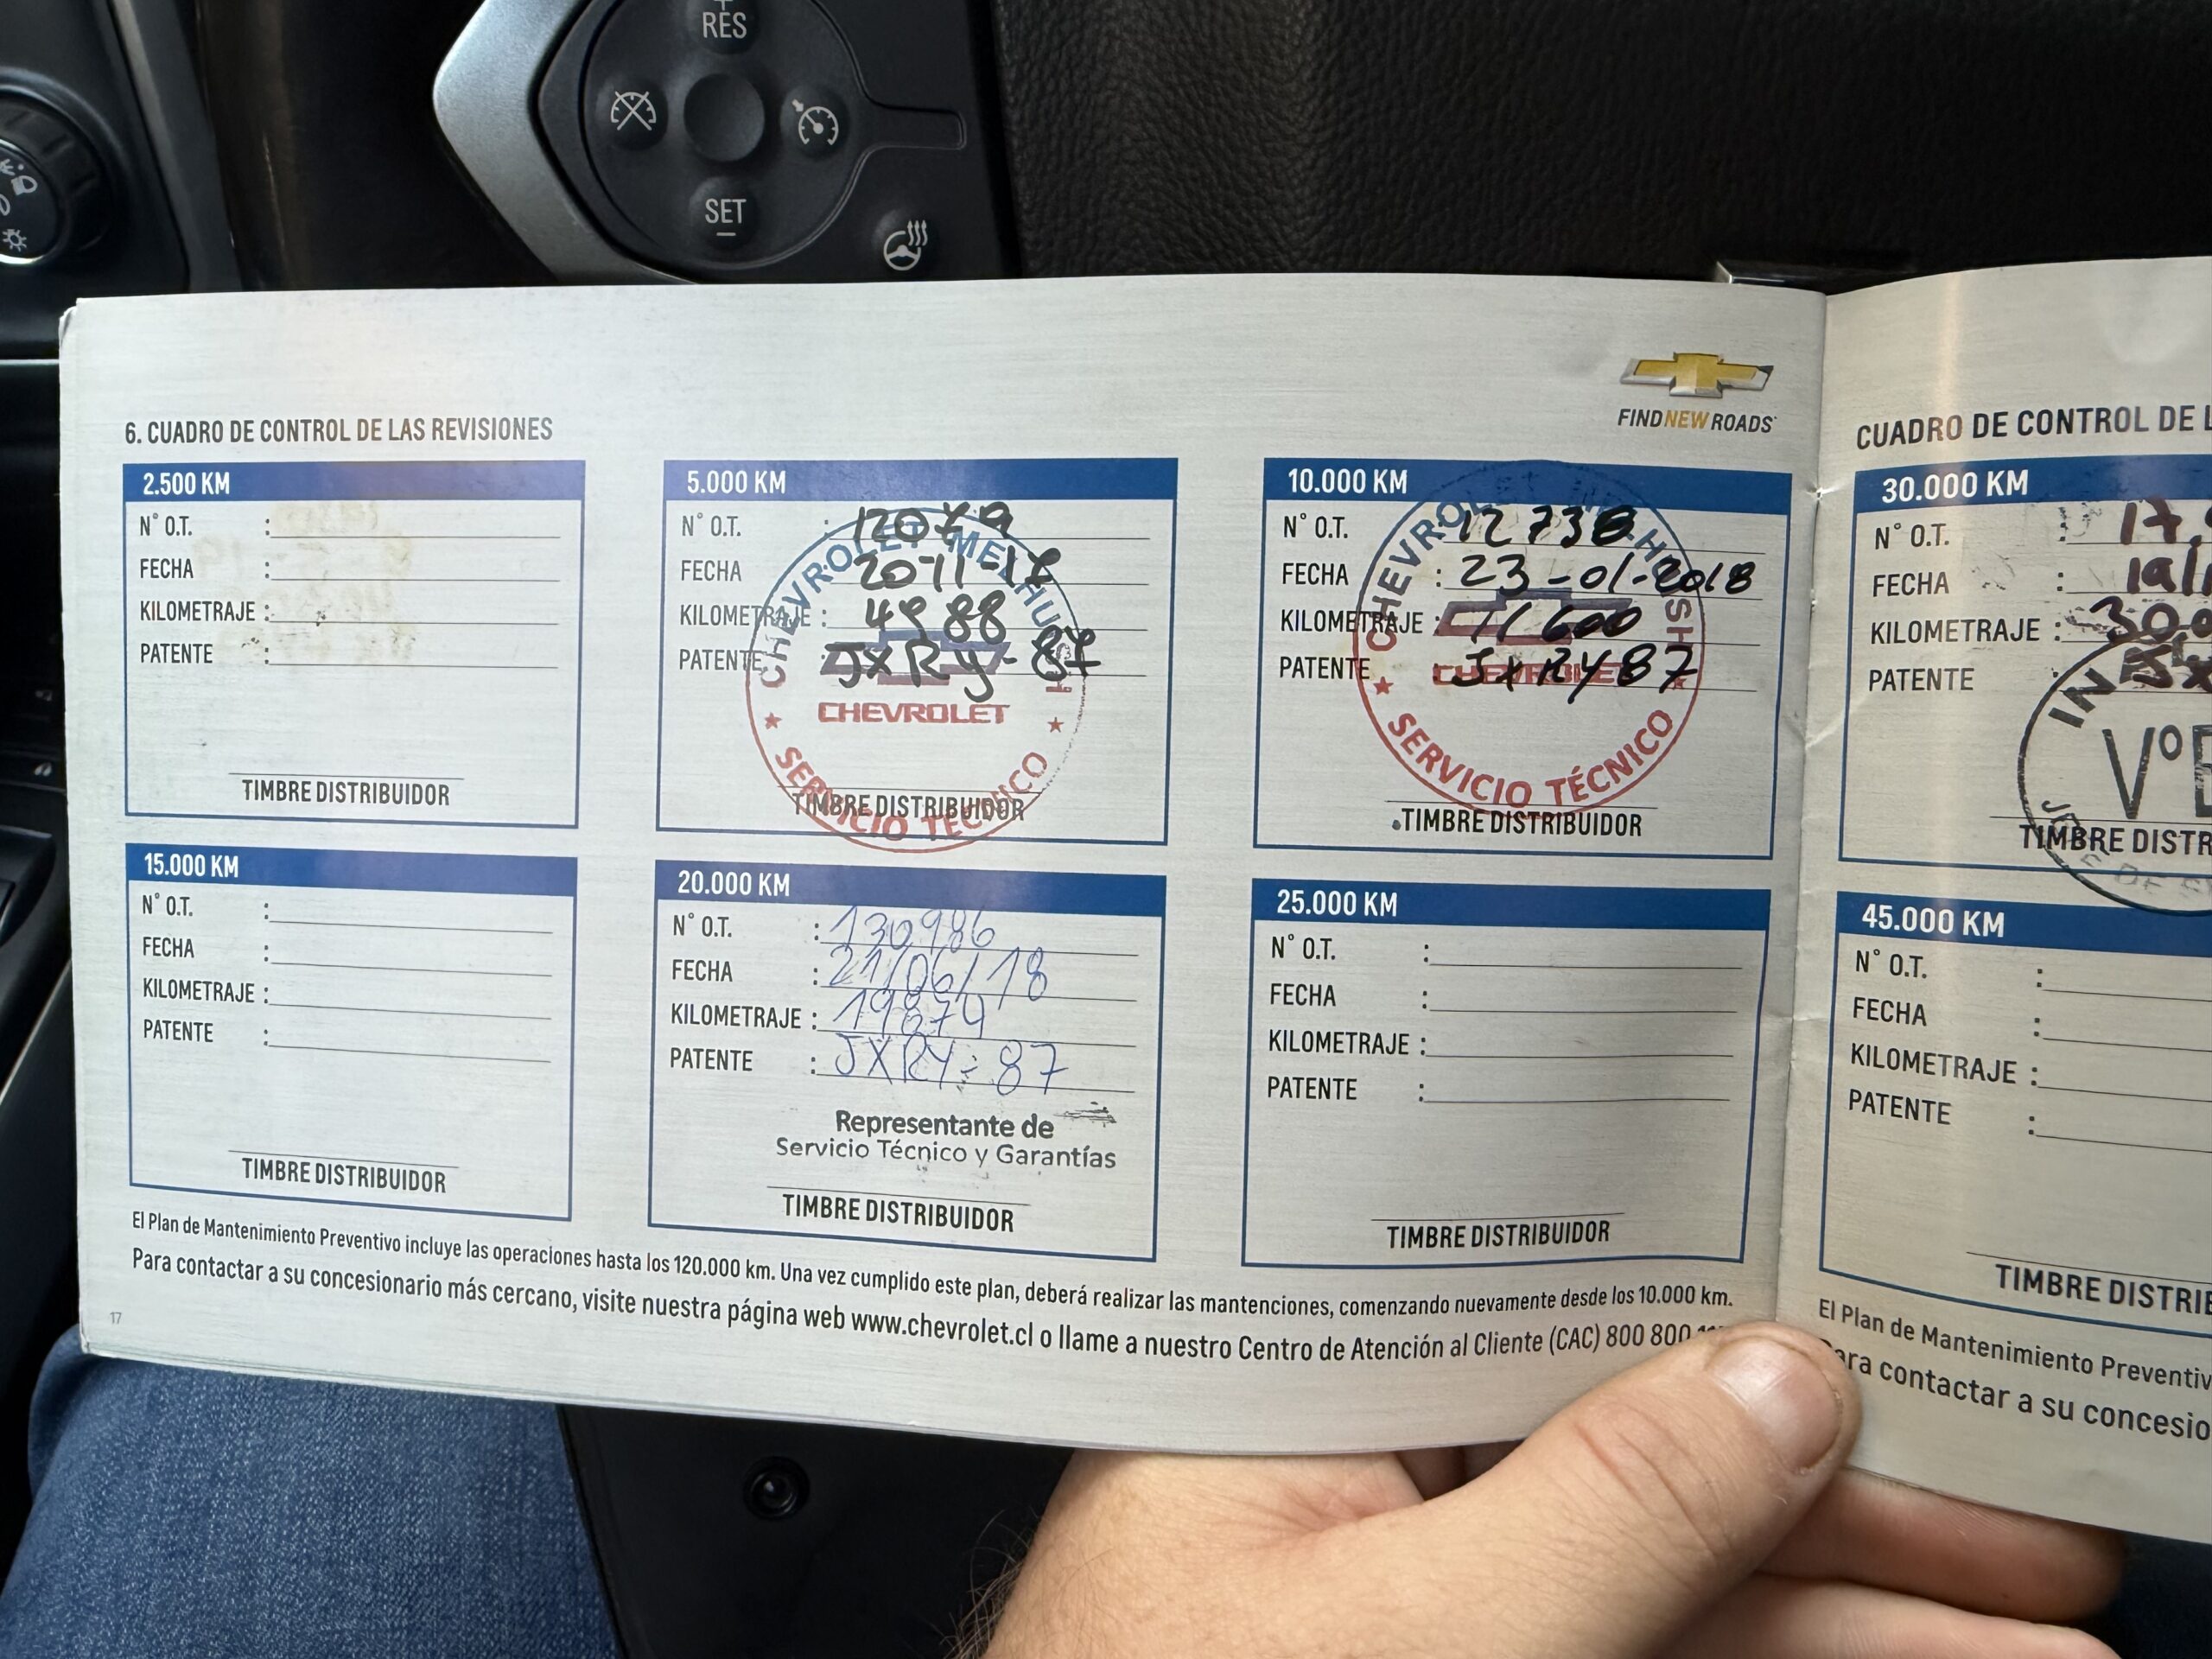 RES
SET
FIND NEW ROADS
6. CUADRO DE CONTROL DE LAS REVISIONES
2.500 KM
N° O.T. :
FECHA :
KILOMETRAJE :
PATENTE :
TIMBRE DISTRIBUIDOR
5.000 KM
N° O.T. : 12079
FECHA 20-11-17
KILOMETRAJE : 4988
PATENTE JXRY-87
CHEVROLET
SERVICIO TÉCNICO
TIMBRE DISTRIBUIDOR
10.000 KM
N° O.T. 12738
FECHA : 23-01-2018
KILOMETRAJE : 11600
PATENTE : JXRY87
CHEVROLET
SERVICIO TÉCNICO
TIMBRE DISTRIBUIDOR
15.000 KM
N° O.T. :
FECHA :
KILOMETRAJE :
PATENTE :
TIMBRE DISTRIBUIDOR
20.000 KM
N° O.T. : 130986
FECHA : 21/06/18
KILOMETRAJE : 19874
PATENTE : JXRY-87
Representante de
Servicio Técnico y Garantías
TIMBRE DISTRIBUIDOR
25.000 KM
N° O.T. :
FECHA :
KILOMETRAJE :
PATENTE :
TIMBRE DISTRIBUIDOR
El Plan de Mantenimiento Preventivo incluye las operaciones hasta los 120.000 km. Una vez cumplido este plan, deberá realizar las mantenciones, comenzando nuevamente desde los 10.000 km.
Para contactar a su concesionario más cercano, visite nuestra página web www.chevrolet.cl o llame a nuestro Centro de Atención al Cliente (CAC) 800 800
17
CUADRO DE CONTROL DE
30.000 KM
N° O.T. :
FECHA :
KILOMETRAJE :
PATENTE
TIMBRE
45.000 KM
N° O.T. :
FECHA :
KILOMETRAJE :
PATENTE :
TIMBRE
El Plan de Mantenimiento
contactar a su